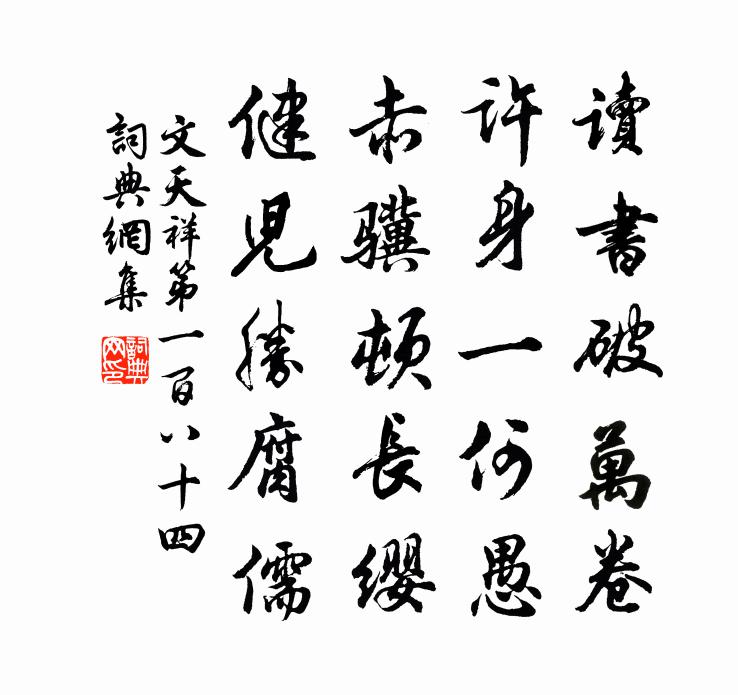 讀書破萬卷
許身一何愚
赤驥頓長纓
健児勝腐儒
文天祥第一百八十四
詞典網集
詞典网印